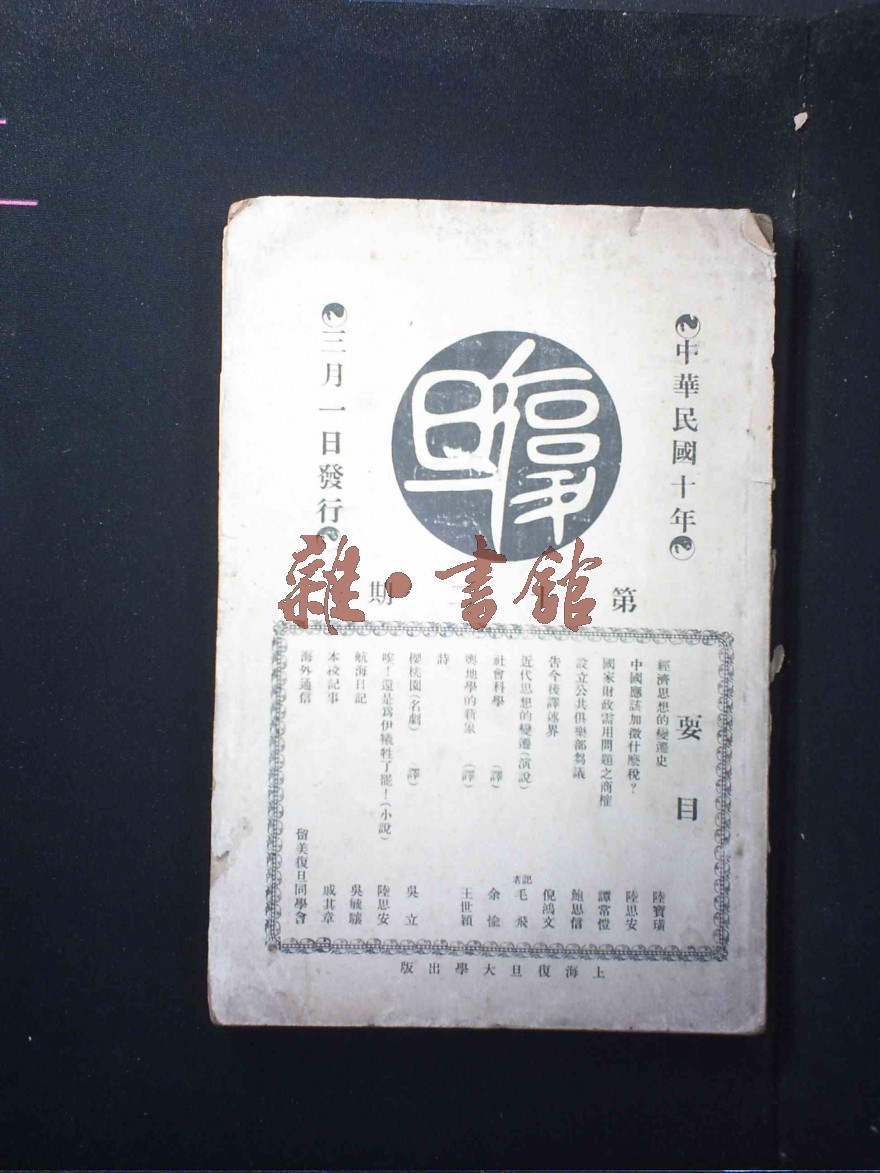 中華民國十年
復旦
三月一日發行
第十二期
雜·書館
要目
經濟思想的變遷史 陸寶璜
中國應該加徵什麽稅？ 陸思安
國家財政需用問題之商榷 譚常愷
設立公共俱樂部芻議 鮑思信
告今後譯述界 倪鴻文
近代思想的變遷(演說) 記者 毛飛
社會科學 (譯) 余愉
輿地學的新象 (譯) 王世穎
詩
櫻桃園(名劇) (譯) 吳立
唉！還是爲伊犧牲了罷！(小說) 陸思安
航海日記 吳毓驤
本校記事 戚其章
海外通信 留美復旦同學會
上海復旦大學出版